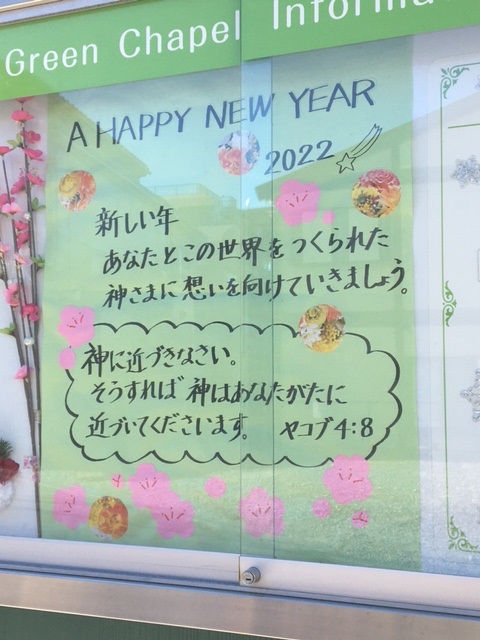 Green Chapel Informa
A HAPPY NEW YEAR
2022
新しい年
あなたとこの世界をつくられた
神さまに想いを向けていきましょう。
神に近づきなさい。
そうすれば神はあなたがたに
近づいてくださいます。 ヤコブ4:8